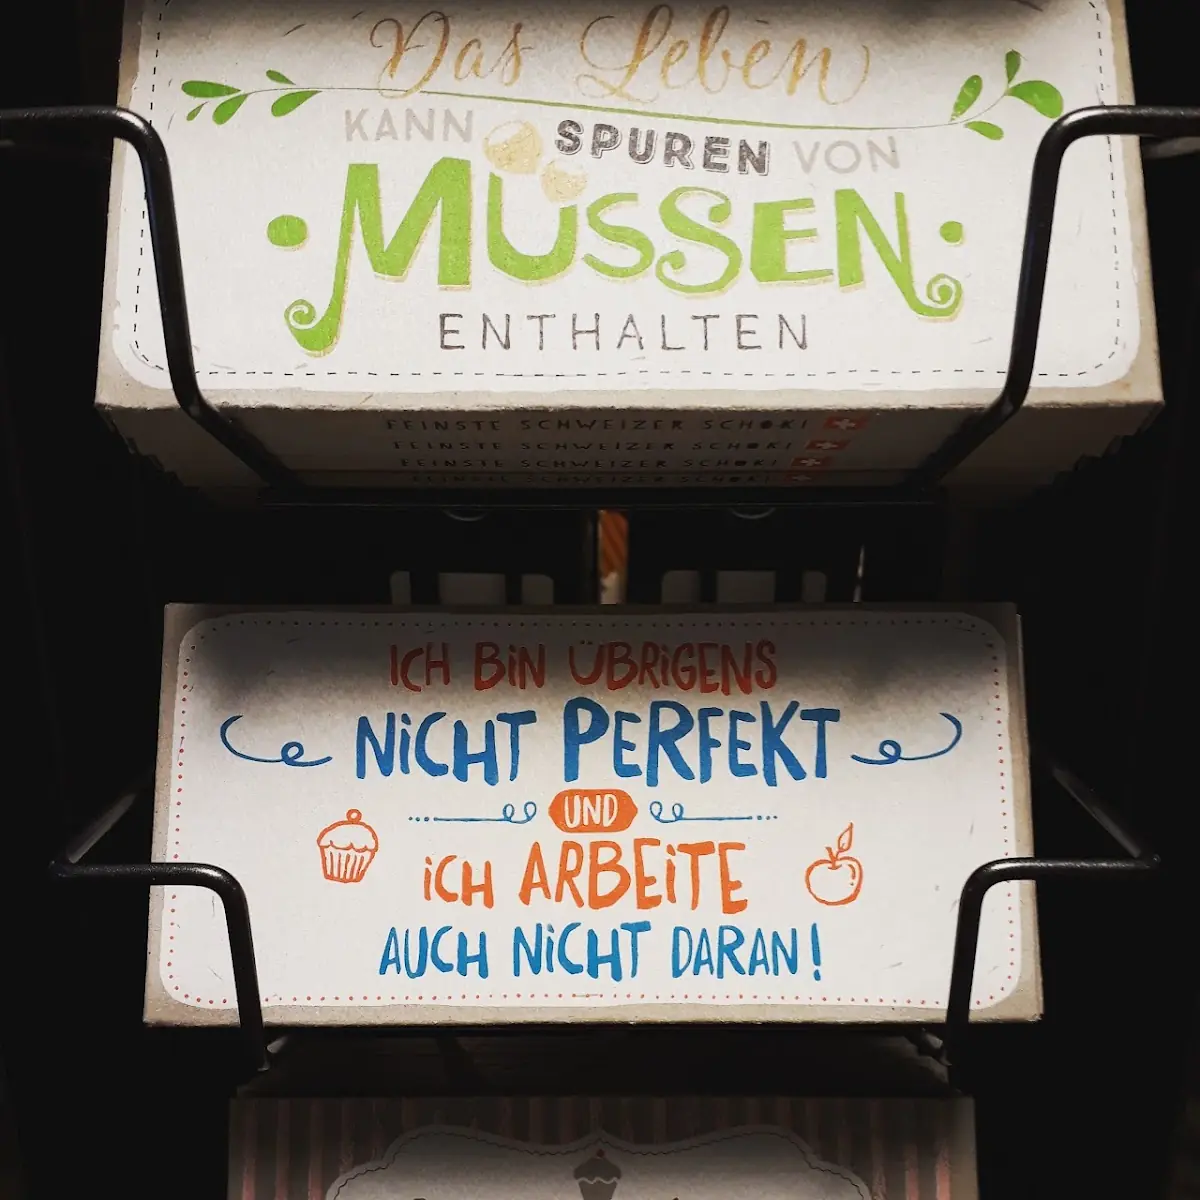 Das Leben
KANN SPUREN VON
MÜSSEN
ENTHALTEN
FEINSTE SCHWEIZER SCHOKI
FEINSTE SCHWEIZER SCHOKI
FEINSTE SCHWEIZER SCHOKI
FEINSTE SCHWEIZER SCHOKI
ICH BiN ÜBRiGENS
NiCHT PERFEKT
UND
iCH ARBEiTE
AUCH NiCHT DARAN!